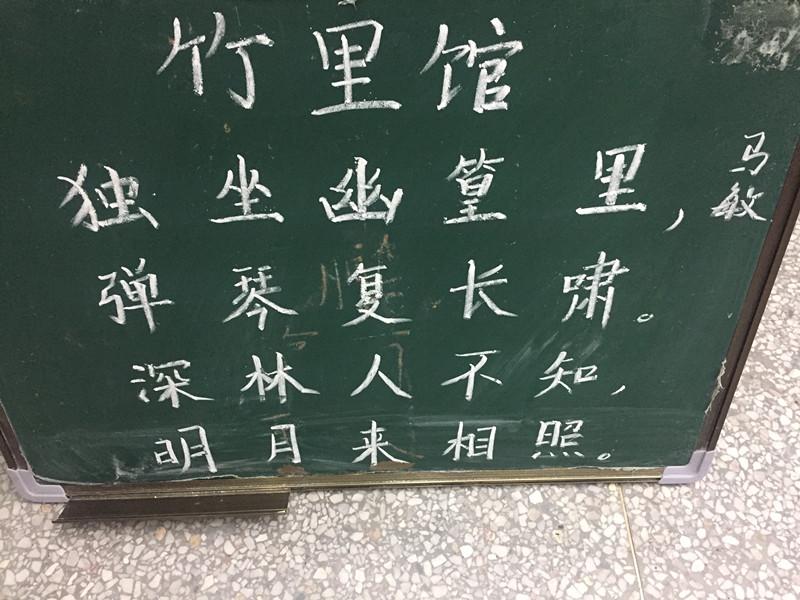 竹里馆
独坐幽篁里，
马敏
弹琴复长啸。
深林人不知，
明月来相照。